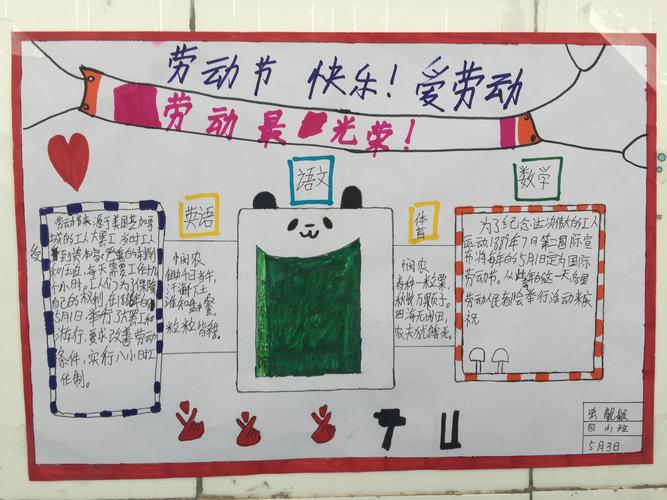 劳动节 快乐！爱劳动
劳动最光荣！
语文
数学
英语
体育
劳动节来源于美国芝加哥
城的工人大罢工，当时工人
受到资本家严重的剥削
和压迫，每天需要工作十
个小时。工人们为了保障
自己的权利，在
5月1日举行了大罢工和
游行，要求改善劳动
条件，实行八小时工
作制。
悯农
锄禾日当午，
汗滴禾下土，
谁知盘中餐，
粒粒皆
悯农
春种一粒粟，
秋收万颗子，
四海无闲田，
农夫犹饿死。
为了纪念这次伟大的工人
运动1889年7月第二国际宣
布将每年的5月1日定为国际
劳动节。从此每年的这一天各国
劳动人民都会举行活动来庆
祝
5月3日